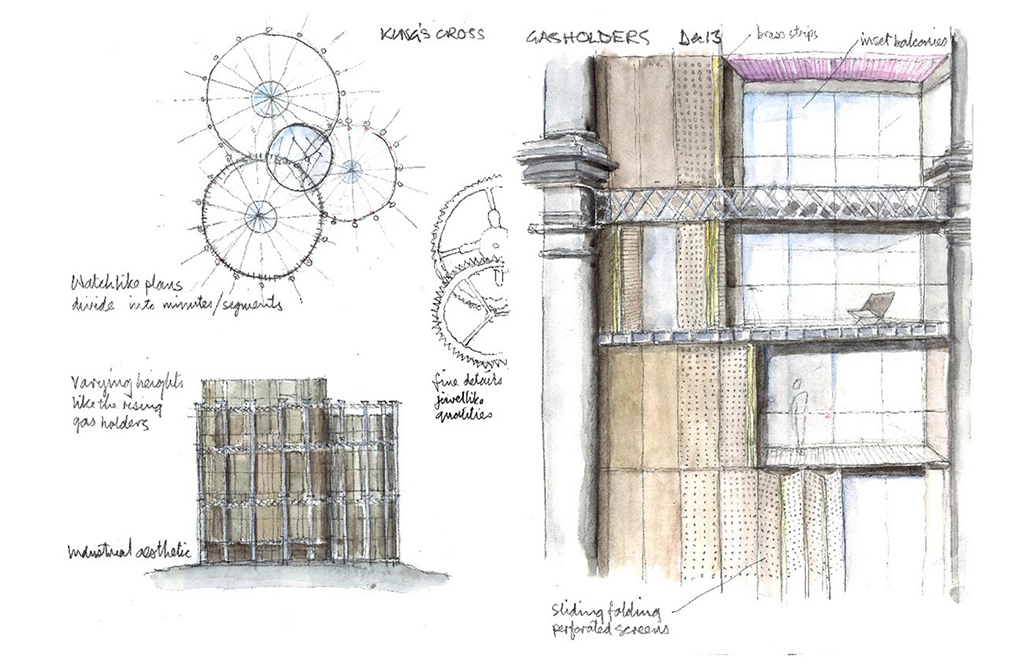 KING'S CROSS GASHOLDERS Dec 13
brass strips
inset balconies
Watchlike plans
divide into minutes/segments
Varying heights
like the rising
gas holders
fine details
jewellike
qualities
Industrial aesthetic
Sliding folding
perforated screens